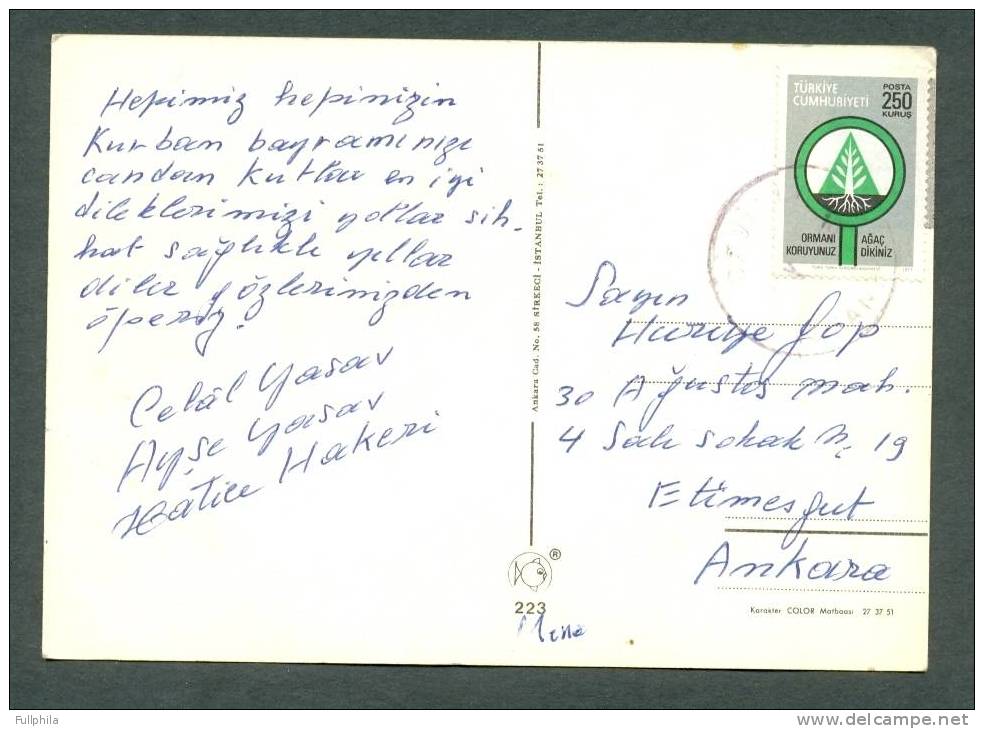 Hepimiz hepinizin
Kurban bayramınızı
candan kutlar en iyi
dileklerimizi yollar sıh-
hat sağlıklı yıllar
diler gözlerinizden
öperiz.
Celâl Yaşav
Ayşe Yaşav
Hatice Hakeri
Ankara Cad. No. 58 SİRKECİ - İSTANBUL Tel.: 27 37 51
TÜRKİYE
CUMHURİYETİ
POSTA
250
KURUŞ
ORMANI
KORUYUNUZ
AĞAÇ
DİKİNİZ
1977
Sayın
Huriye
30 Ağustos mah.
4 Salı sokak N: 19
Etimesgut
Ankara
®
223
Karakter COLOR Matbaası 27 37 51
Fullphila
www.delcampe.net